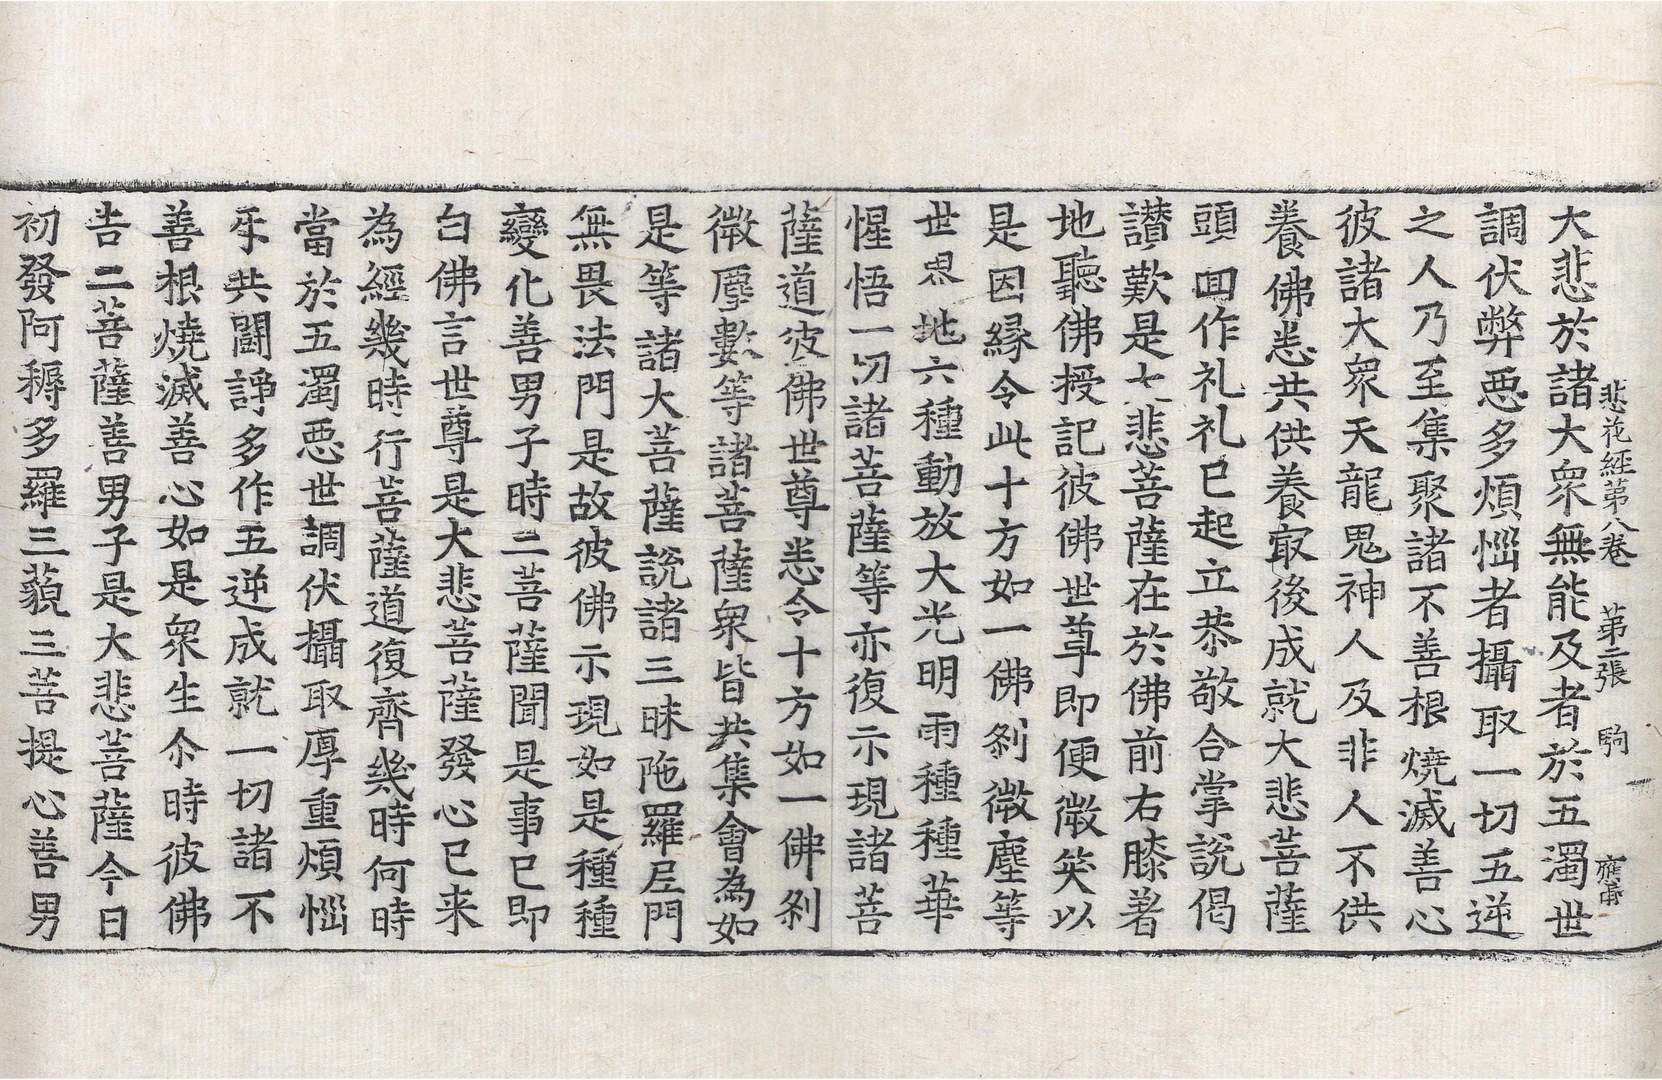 悲花經第八卷　第二張　駒
大悲於諸大衆無能及者於五濁世
調伏弊恶多煩惱者攝取一切五逆
之人乃至集聚諸不善根燒滅善心
彼諸大衆天龍鬼神人及非人不供
養佛悉共供養㝡後成就大悲菩薩
頭面作礼礼已起立恭敬合掌說偈
讃歎是大悲菩薩在於佛前右膝著
地聽佛授記彼佛世尊即便微笑以
是因緣令此十方如一佛刹微塵等
世界地六種動放大光明雨種種華
惺悟一切諸菩薩等亦復示現諸菩
薩道彼佛世尊悉令十方如一佛刹
微塵數等諸菩薩衆皆共集會為如
是等諸大菩薩說諸三昧陁羅尼門
無畏法門是故彼佛示現如是種種
變化善男子時二菩薩聞是事已即
白佛言世尊是大悲菩薩發心已来
為經幾時行菩薩道復齊幾時何時
當於五濁恶世調伏攝取厚重煩惱
㸦共鬭諍多作五逆成就一切諸不
善根燒滅善心如是衆生尒時彼佛
告二菩薩善男子是大悲菩薩今日
初發阿耨多羅三藐三菩提心善男